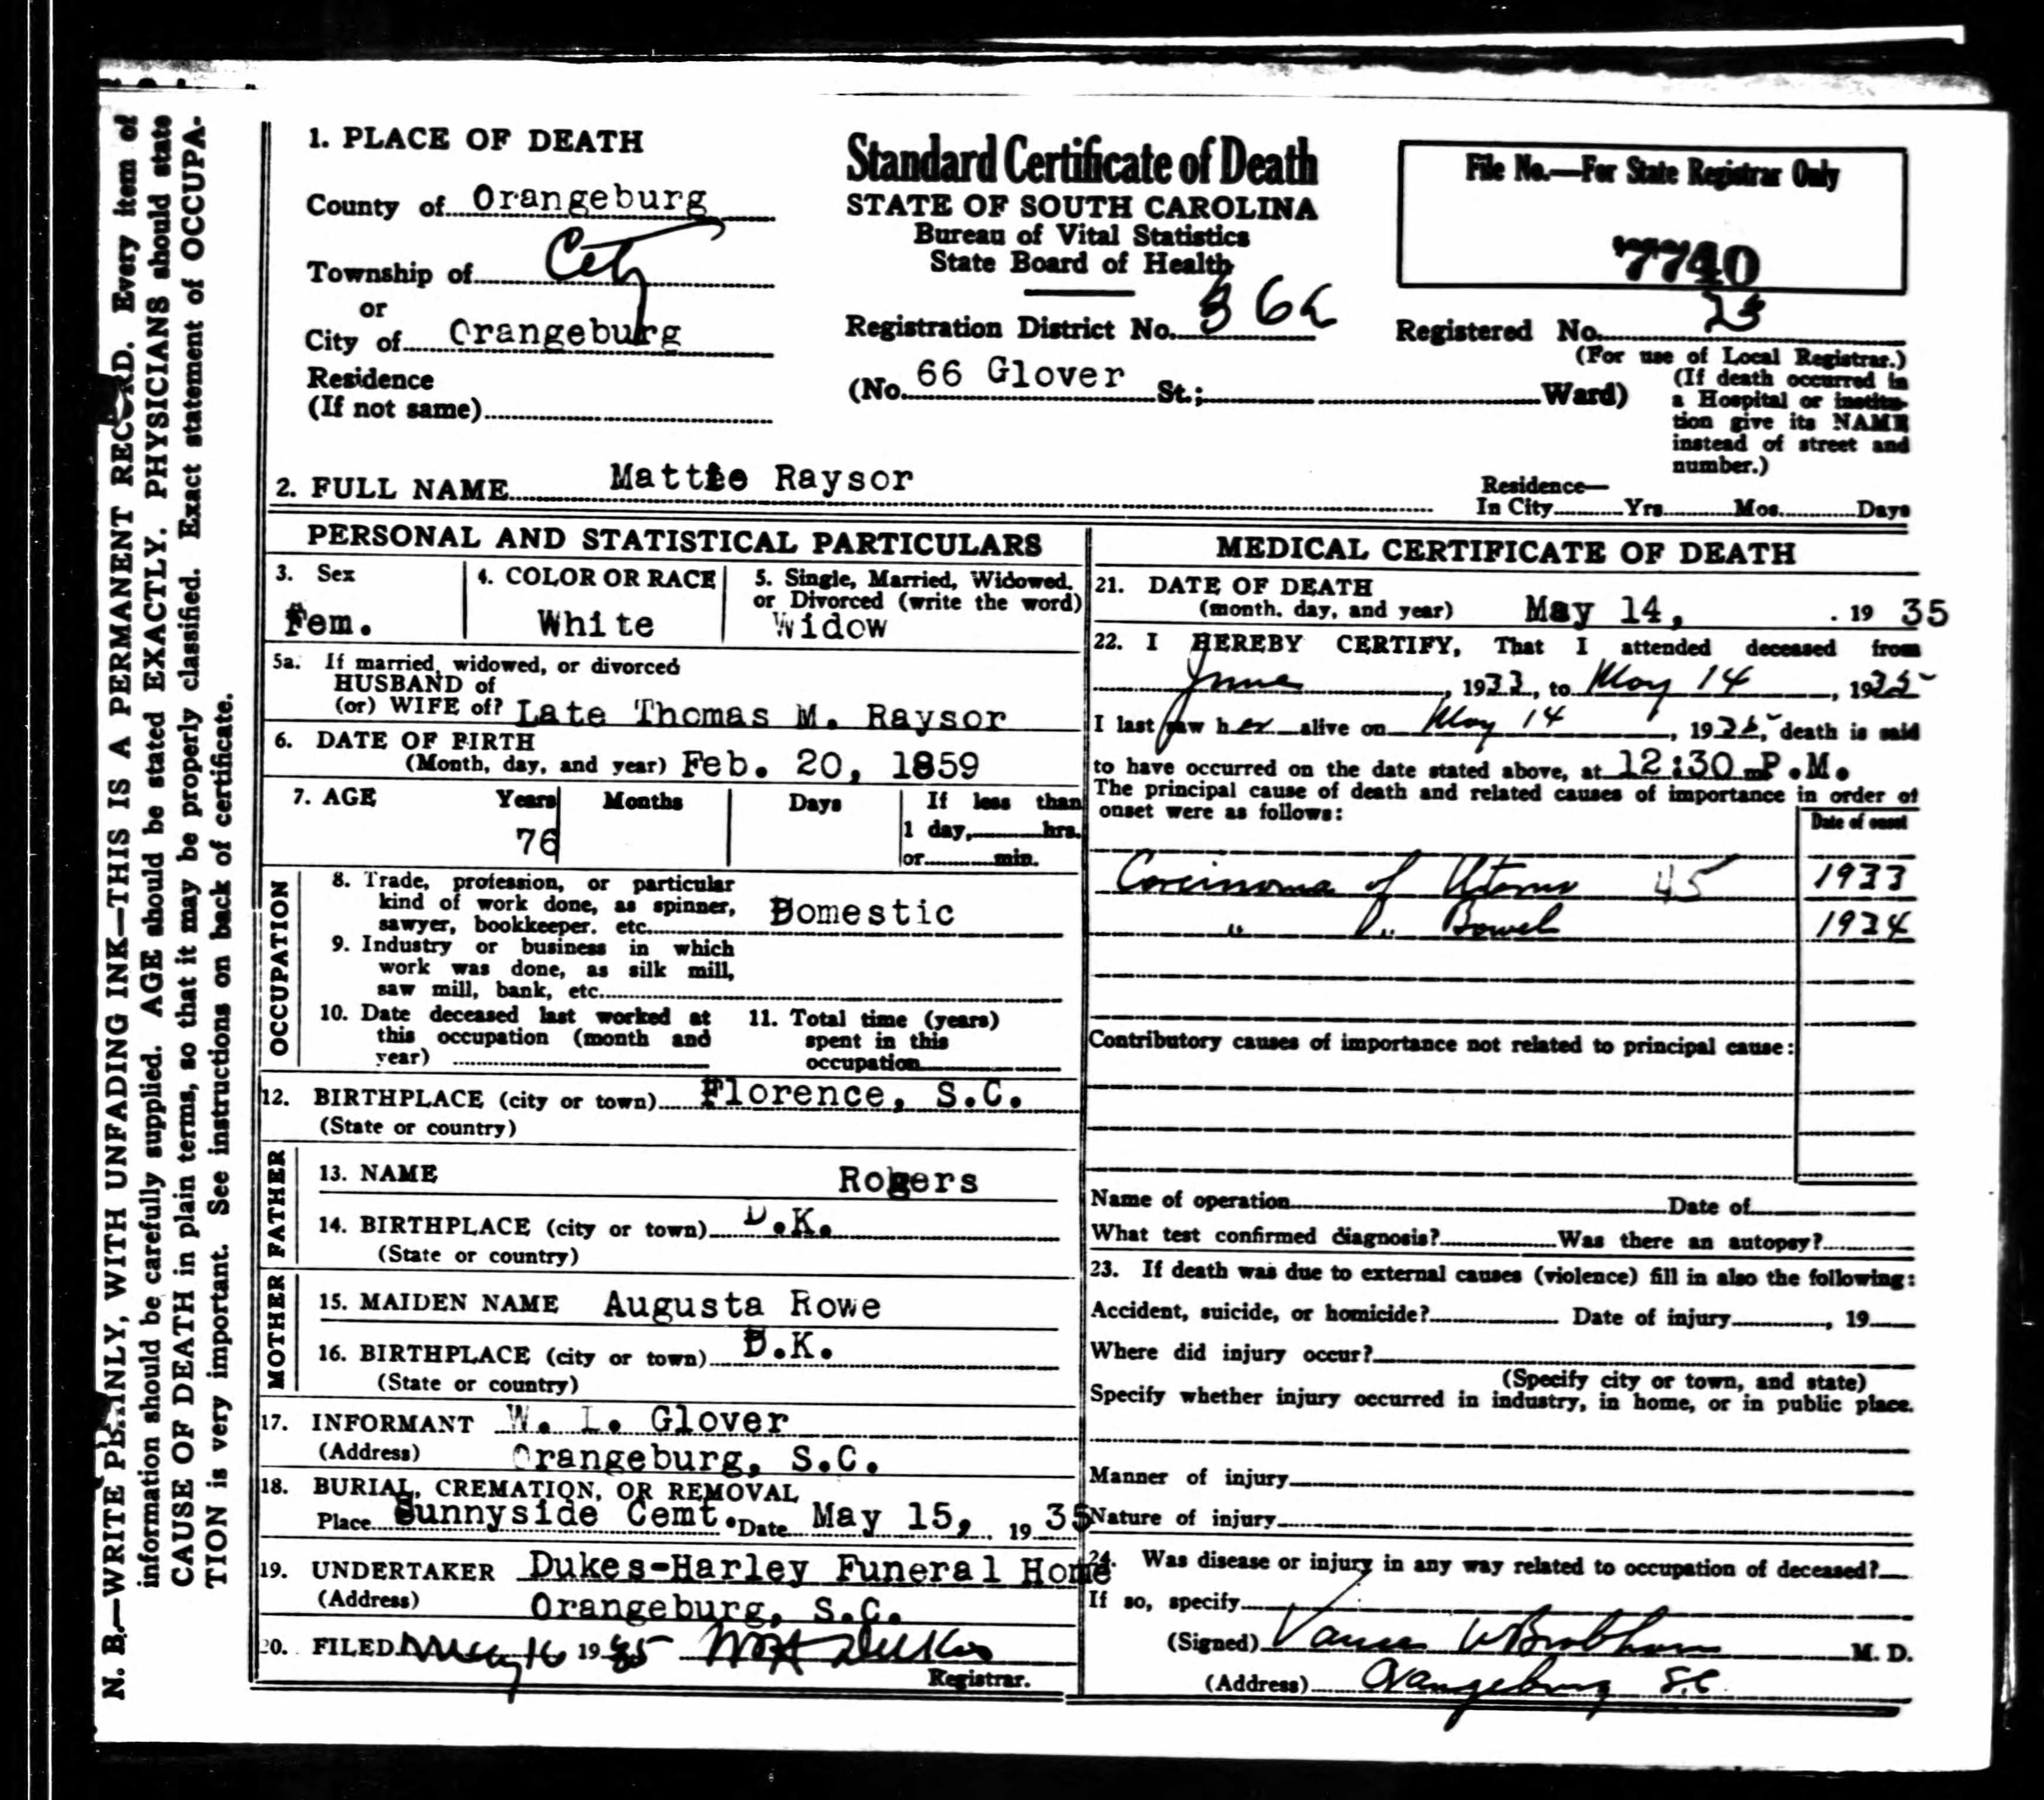 N. B.—WRITE PLAINLY, WITH UNFADING INK—THIS IS A PERMANENT RECORD. Every item of
information should be carefully supplied. AGE should be stated EXACTLY. PHYSICIANS should state
CAUSE OF DEATH in plain terms, so that it may be properly classified. Exact statement of OCCUPA-
TION is very important. See instructions on back of certificate.
1. PLACE OF DEATH
County of Orangeburg
Township of City
or
City of Orangeburg
Residence
(If not same)
Standard Certificate of Death
STATE OF SOUTH CAROLINA
Bureau of Vital Statistics
State Board of Health
Registration District No.
(No. 66 Glover St.; Ward)
File No.—For State Registrar Only
7740
Registered No. 23
(For use of Local Registrar.)
(If death occurred in
a Hospital or institu-
tion give its NAME
instead of street and
number.)
2. FULL NAME Mattie Raysor
Residence—
In City Yrs Mos. Days
PERSONAL AND STATISTICAL PARTICULARS
3. Sex
Fem.
4. COLOR OR RACE
White
5. Single, Married, Widowed,
or Divorced (write the word)
Widow
5a. If married, widowed, or divorced
HUSBAND of
(or) WIFE of? Late Thomas M. Raysor
6. DATE OF BIRTH
(Month, day, and year) Feb. 20, 1859
7. AGE Years Months Days If less than
1 day, hrs.
76
or min.
OCCUPATION
8. Trade, profession, or particular
kind of work done, as spinner,
sawyer, bookkeeper. etc. Domestic
9. Industry or business in which
work was done, as silk mill,
saw mill, bank, etc.
10. Date deceased last worked at
this occupation (month and
year)
11. Total time (years)
spent in this
occupation
12. BIRTHPLACE (city or town) Florence, S.C.
(State or country)
FATHER
13. NAME Rogers
14. BIRTHPLACE (city or town) D.K.
(State or country)
MOTHER
15. MAIDEN NAME Augusta Rowe
16. BIRTHPLACE (city or town) D.K.
(State or country)
17. INFORMANT W. L. Glover
(Address) Orangeburg, S.C.
18. BURIAL, CREMATION, OR REMOVAL
Place Sunnyside Cemt. Date May 15, 19 35
19. UNDERTAKER Dukes-Harley Funeral Home
(Address) Orangeburg, S.C.
20. FILED May 16 1935
Registrar.
MEDICAL CERTIFICATE OF DEATH
21. DATE OF DEATH
(month, day, and year) May 14, . 19 35
22. I HEREBY CERTIFY, That I attended deceased from
June, 1933, to May 14, 1935
I last saw her alive on May 14, 1935, death is said
to have occurred on the date stated above, at 12:30 m P.M.
The principal cause of death and related causes of importance in order of
onset were as follows:
Date of onset
Carcinoma of Uterus 45 1933
" " Bowel 1934
Contributory causes of importance not related to principal cause:
Name of operation Date of
What test confirmed diagnosis? Was there an autopsy?
23. If death was due to external causes (violence) fill in also the following:
Accident, suicide, or homicide? Date of injury, 19
Where did injury occur?
(Specify city or town, and state)
Specify whether injury occurred in industry, in home, or in public place.
Manner of injury
Nature of injury
24. Was disease or injury in any way related to occupation of deceased?
If so, specify
(Signed) Vance W Brabham M. D.
(Address) Orangeburg S.C